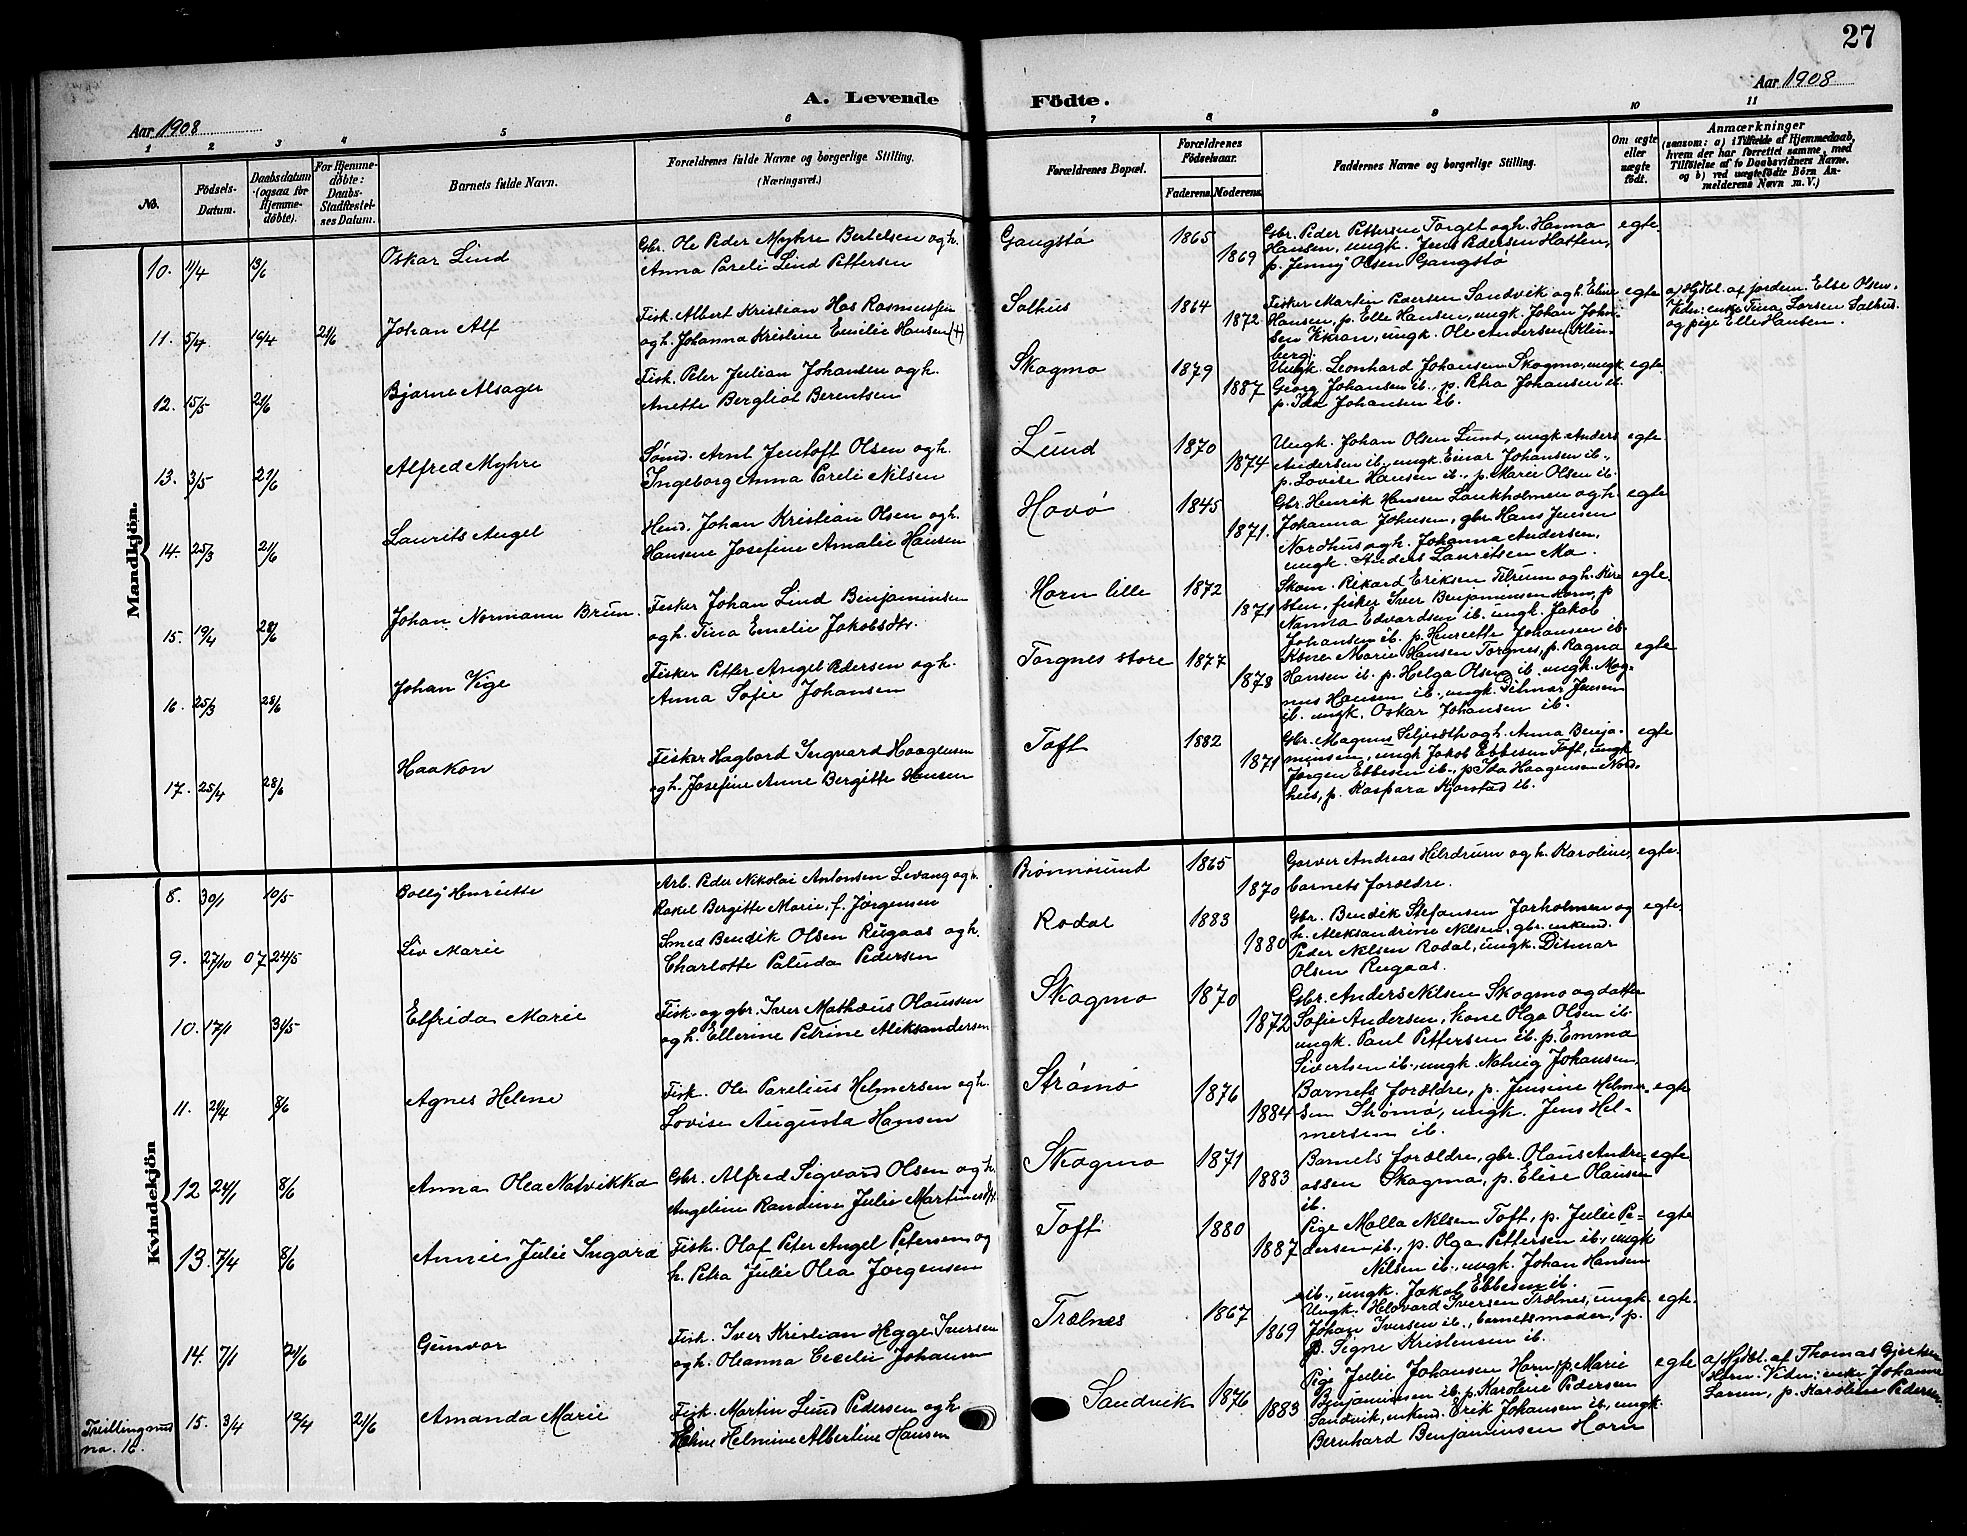 27
A. Levende Födte.
Aar 1908
Aar 1908
1 2 3 4 5 6 7 8 9 10 11
No.
Födsels-Datum.
Daabsdatum (ogsaa for Hjemmedöbte).
For Hjemmedöbte: Daabs-Stadfæstelsens Datum.
Barnets fulde Navn.
Forældrenes fulde Navne og borgerlige Stilling.
(Næringsvei.)
Forældrenes Bopæl.
Forældrenes Födselsaar.
Faderens. Moderens.
Faddernes Navne og borgerlige Stilling.
Om ægte eller uægte födt.
Anmærkninger
(saasom: a) i Tilfælde af Hjemmedaab, hvem der har forrettet samme, med Tilföielse af to Daabsvidners Navne. og b) ved uægtefödte Börn Anmelderens Navn m.V.)
Mandkjön.
10. 11/4 13/6 Oskar Lind
Gbr. Ole Peder Myhre Bertelsen og h.
Anna Pareli Lind Pettersen
Gangstø 1865 1869
Gbr. Peder Pettersen Torget og h. Hanna
Hansen, ungk. Jens Pedersen Hatten,
p. Jenny Olsen Gangstø
egte
11. 5/4 19/4 21/6 Johan Alf
Fisk. Albert Kristian Hos Rasmussen
og h. Johanna Kristine Emilie Hansen (+)
Salhus 1864 1872
Fisker Martin Pedersen Sandvik og h. Eline
Hansen, p. Elle Hansen, ungk. Johan Johnsen
Vikran, ungk. Ole Andersen (Klinberg)
egte
a) Hjdbt. af jordem. Else Olsen.
Vidn: enke Tina Larsen Salhus
og pige Elle Hansen.
12. 15/5 21/6 Bjarne Alsager
Fisk. Peter Julian Johansen og h.
Anette Bergliot Berentsen
Skogmo 1879 1887
Ungk. Leonhard Johansen Skogmo, ungk
Georg Johansen ib., p. Petra Johansen ib
p. Ida Johansen ib.
egte
13. 3/5 21/6 Alfred Myhre
Sømd. Arnt Jentoft Olsen og h.
Ingeborg Anna Pareli Nilsen
Lund 1870 1874
Ungk. Johan Olsen Lund, ungk Anders
Andersen ib. ungk. Einar Johansen ib.,
p. Lovise Hansen ib., p. Marie Olsen ib.
egte
14. 25/3 21/6 Laurits Angel
Hmd. Johan Kristian Olsen og h.
Hansine Josefine Amalie Hansen
Havø 1845 1871.
Gbr. Henrik Hansen Lankholmen og h
Johanna Johnsen, gbr. Hans Jensen
Nordhus og h. Johanna Andersen,
ungk. Anders Lauritsen Mo.
egte
15. 19/4 28/6 Johan Normann Brun
Fisker Johan Lind Benjaminsen
og h. Tina Emelie Jakobsdtr.
Horn lille 1872 1871
Skom. Rikard Eriksen Tilrum og h. Kirsten,
fisker Iver Benjaminsen Horn, p
Nanna Edvardsen ib. ungk. Jakob
Johansen ib. p. Henriette Johansen ib.
egte
16. 25/3 28/6 Johan Vige
Fisker Petter Angel Pedersen og h.
Anna Sofie Johansen
Torgnes store 1877 1878
Kone Marie Hansen Torgnes, p. Ragna
Hansen ib. p. Helga Olsen ib. ungk. Magnus
Hansen ib., ungk. Ditmar Jensen
ib. ungk. Oskar Johansen ib.
egte
17. 25/4 28/6 Haakon
Fisker Hagbard Ingvard Haagensen
og h. Josefine Anne Bergitte Hansen
Toft 1882 1871
Gbr. Magnus Seljeseth og h. Anna Benjaminsen,
ungk Jakob Ebbesen Toft, ungk.
Jørgen Ebbesen ib., p Ida Haagensen Nordhus,
p. Kaspara Kjørstad ib.
egte
Kvindekjön
8. 30/1 10/5 Bolly Henriette
Arb. Peder Nikolai Antonsen Levang og h.
Rakel Bergitte Marie, f. Jørgensen
Brønnøsund 1865 1870
Garver Andreas Hildrum og h. Karoline,
barnets forældre.
egte.
9. 27/10 07 24/5 Liv Marie
Smed Bendik Olsen Rugaas og h.
Charlotte Paluda Pedersen
Rodal 1883 1880
Gbr. Bendik Stefansen Jarholmen og
h. Aleksandrine Nilsen, gbr. enkend.
Peder Nilsen Rodal, ungk. Ditmar
Olsen Rugaas.
egte.
10. 17/1 31/5 Elfrida Marie
Fisk. og gbr. Iver Mathæus Olaussen
og h. Ellerine Petrine Aleksandersen
Skogmo 1870 1872
Gbr. Anders Nilsen Skogmo og datter
Sofie Andersen, kone Olga Olsen ib
ungk. Paul Pettersen ib. p. Emma
Sivertsen ib., ungk Nalvig Johansen.
11. 21/4 8/6 Agnes Helene
Fisk. Ole Parelius Helmersen og h.
Lovise Augusta Hansen
Strømø 1876 1884
Barnets forældre, p. Jensine Helmersen
Strømø, ungk. Jens Helmersen
ib.
egte
12 24/1 8/6 Anna Olea Natvikka
Gbr. Alfred Sigvard Olsen og h.
Angeline Randine Julie Martinesdtr.
Skogmo 1871 1883
Barnets forældre, gbr. Olaus Andreassen
Skogmo, p. Elise Olausen
ib.
egte
13. 7/4 8/6 Annie Julie Ingara
Fisk. Olaf Peter Angel Petersen og
h. Petra Julie Olea Jørgensen
Toft 1880 1887
Pige Malla Nilsen Toft, p. Julie Pedersen
ib., p. Olga Pettersen ib., ungk
Nilsen ib., ungk. Johan Hansen
ib., ungk. Jakob Ebbesen ib.
egte
14. 7/1 21/6 Gunvor
Fisk. Iver Kristian Hegge Iversen
og h. Oleanna Cecelie Johansen
Trælnes 1867 1869
Ungk. Halvard Iversen Trælnes, ungk.
Johan Iversen ib., barnets moder, p.
p. Signe Kristensen ib.
egte.
Trilling med no. 16.
15. 3/4 19/4 21/6 Amanda Marie
Fisk. Martin Lund Pedersen og h
Eline Helmine Albertine Hansen
Sandvik 1876 1883
Pige Julie Johansen Horn, p. Marie
Benjaminsen ib. p. Karoline Pedersen
Sandvik, enkem. Erik Johansen ib., ungk.
Bernhard Benjaminsen Horn
egte
a) Hjdbt. af Thomas Gjertsen
Horn. Vidn: enke Johanna
Larsen, p. Karoline Pedersen.